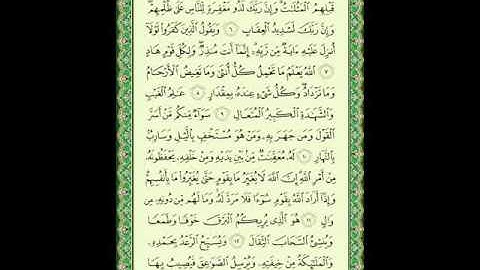 قَبْلِهِمُ الْمَثُلَٰتُ ۗ وَإِنَّ رَبَّكَ لَذُو مَغْفِرَةٍ لِّلنَّاسِ عَلَىٰ ظُلْمِهِمْ ۖ
وَإِنَّ رَبَّكَ لَشَدِيدُ الْعِقَابِ ٦ وَيَقُولُ الَّذِينَ كَفَرُوا لَوْلَا
أُنزِلَ عَلَيْهِ ءَايَةٌ مِّن رَّبِّهِ ۗ إِنَّمَا أَنتَ مُنذِرٌ ۖ وَلِكُلِّ قَوْمٍ هَادٍ
٧ اللَّهُ يَعْلَمُ مَا تَحْمِلُ كُلُّ أُنثَىٰ وَمَا تَغِيضُ الْأَرْحَامُ
وَمَا تَزْدَادُ ۖ وَكُلُّ شَىْءٍ عِندَهُ بِمِقْدَارٍ ٨ عَٰلِمُ الْغَيْبِ
وَالشَّهَٰدَةِ الْكَبِيرُ الْمُتَعَالِ ٩ سَوَآءٌ مِّنكُم مَّنْ أَسَرَّ
الْقَوْلَ وَمَن جَهَرَ بِهِ وَمَنْ هُوَ مُسْتَخْفٍ بِالَّيْلِ وَسَارِبٌ
بِالنَّهَارِ ١٠ لَهُ مُعَقِّبَٰتٌ مِّن بَيْنِ يَدَيْهِ وَمِنْ خَلْفِهِ يَحْفَظُونَهُ
مِنْ أَمْرِ اللَّهِ ۗ إِنَّ اللَّهَ لَا يُغَيِّرُ مَا بِقَوْمٍ حَتَّىٰ يُغَيِّرُوا مَا بِأَنفُسِهِمْ ۗ
وَإِذَا أَرَادَ اللَّهُ بِقَوْمٍ سُوءًا فَلَا مَرَدَّ لَهُ ۚ وَمَا لَهُم مِّن دُونِهِ مِن
وَالٍ ١١ هُوَ الَّذِى يُرِيكُمُ الْبَرْقَ خَوْفًا وَطَمَعًا
وَيُنشِئُ السَّحَابَ الثِّقَالَ ١٢ وَيُسَبِّحُ الرَّعْدُ بِحَمْدِهِ
وَالْمَلَٰٓئِكَةُ مِنْ خِيفَتِهِ وَيُرْسِلُ الصَّوَٰعِقَ فَيُصِيبُ بِهَا